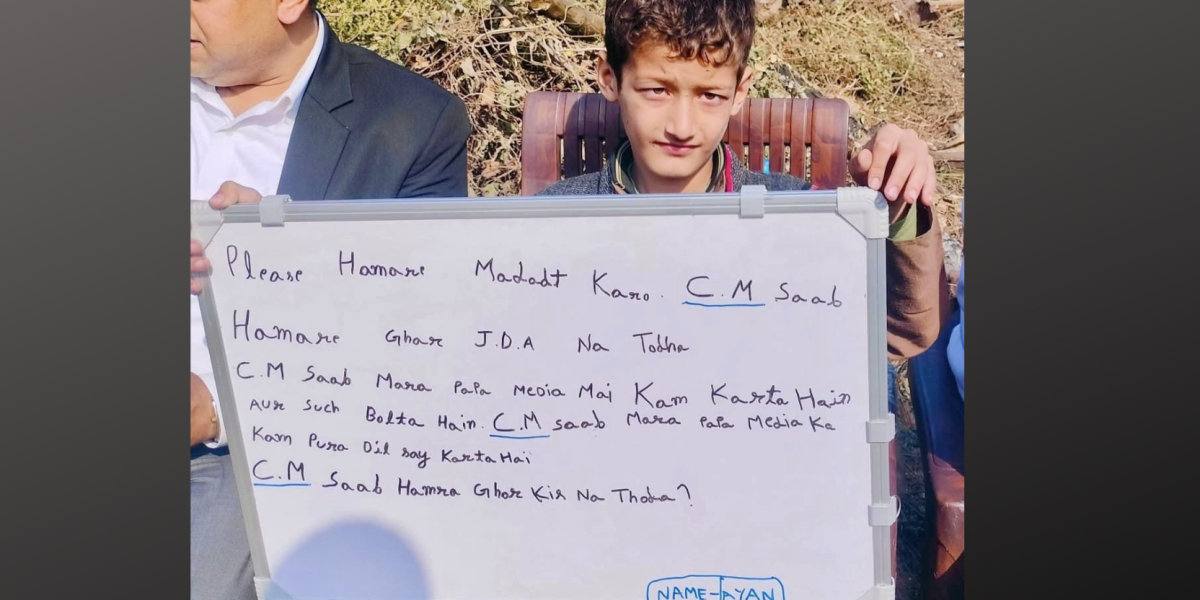 Please Hamare Madadt Karo. C.M Saab
Hamare Ghar J.D.A Na Todha
C.M Saab Mara PaPa MeDia Mai Kam Karta Hain
Aur Such Bolta Hain. C.M saab Mara PaPa Media Ka
Kam Pura Dil say Karta Hai
C.M Saab Hamra Ghar Kis Na Thoda?
NAME-AYAN